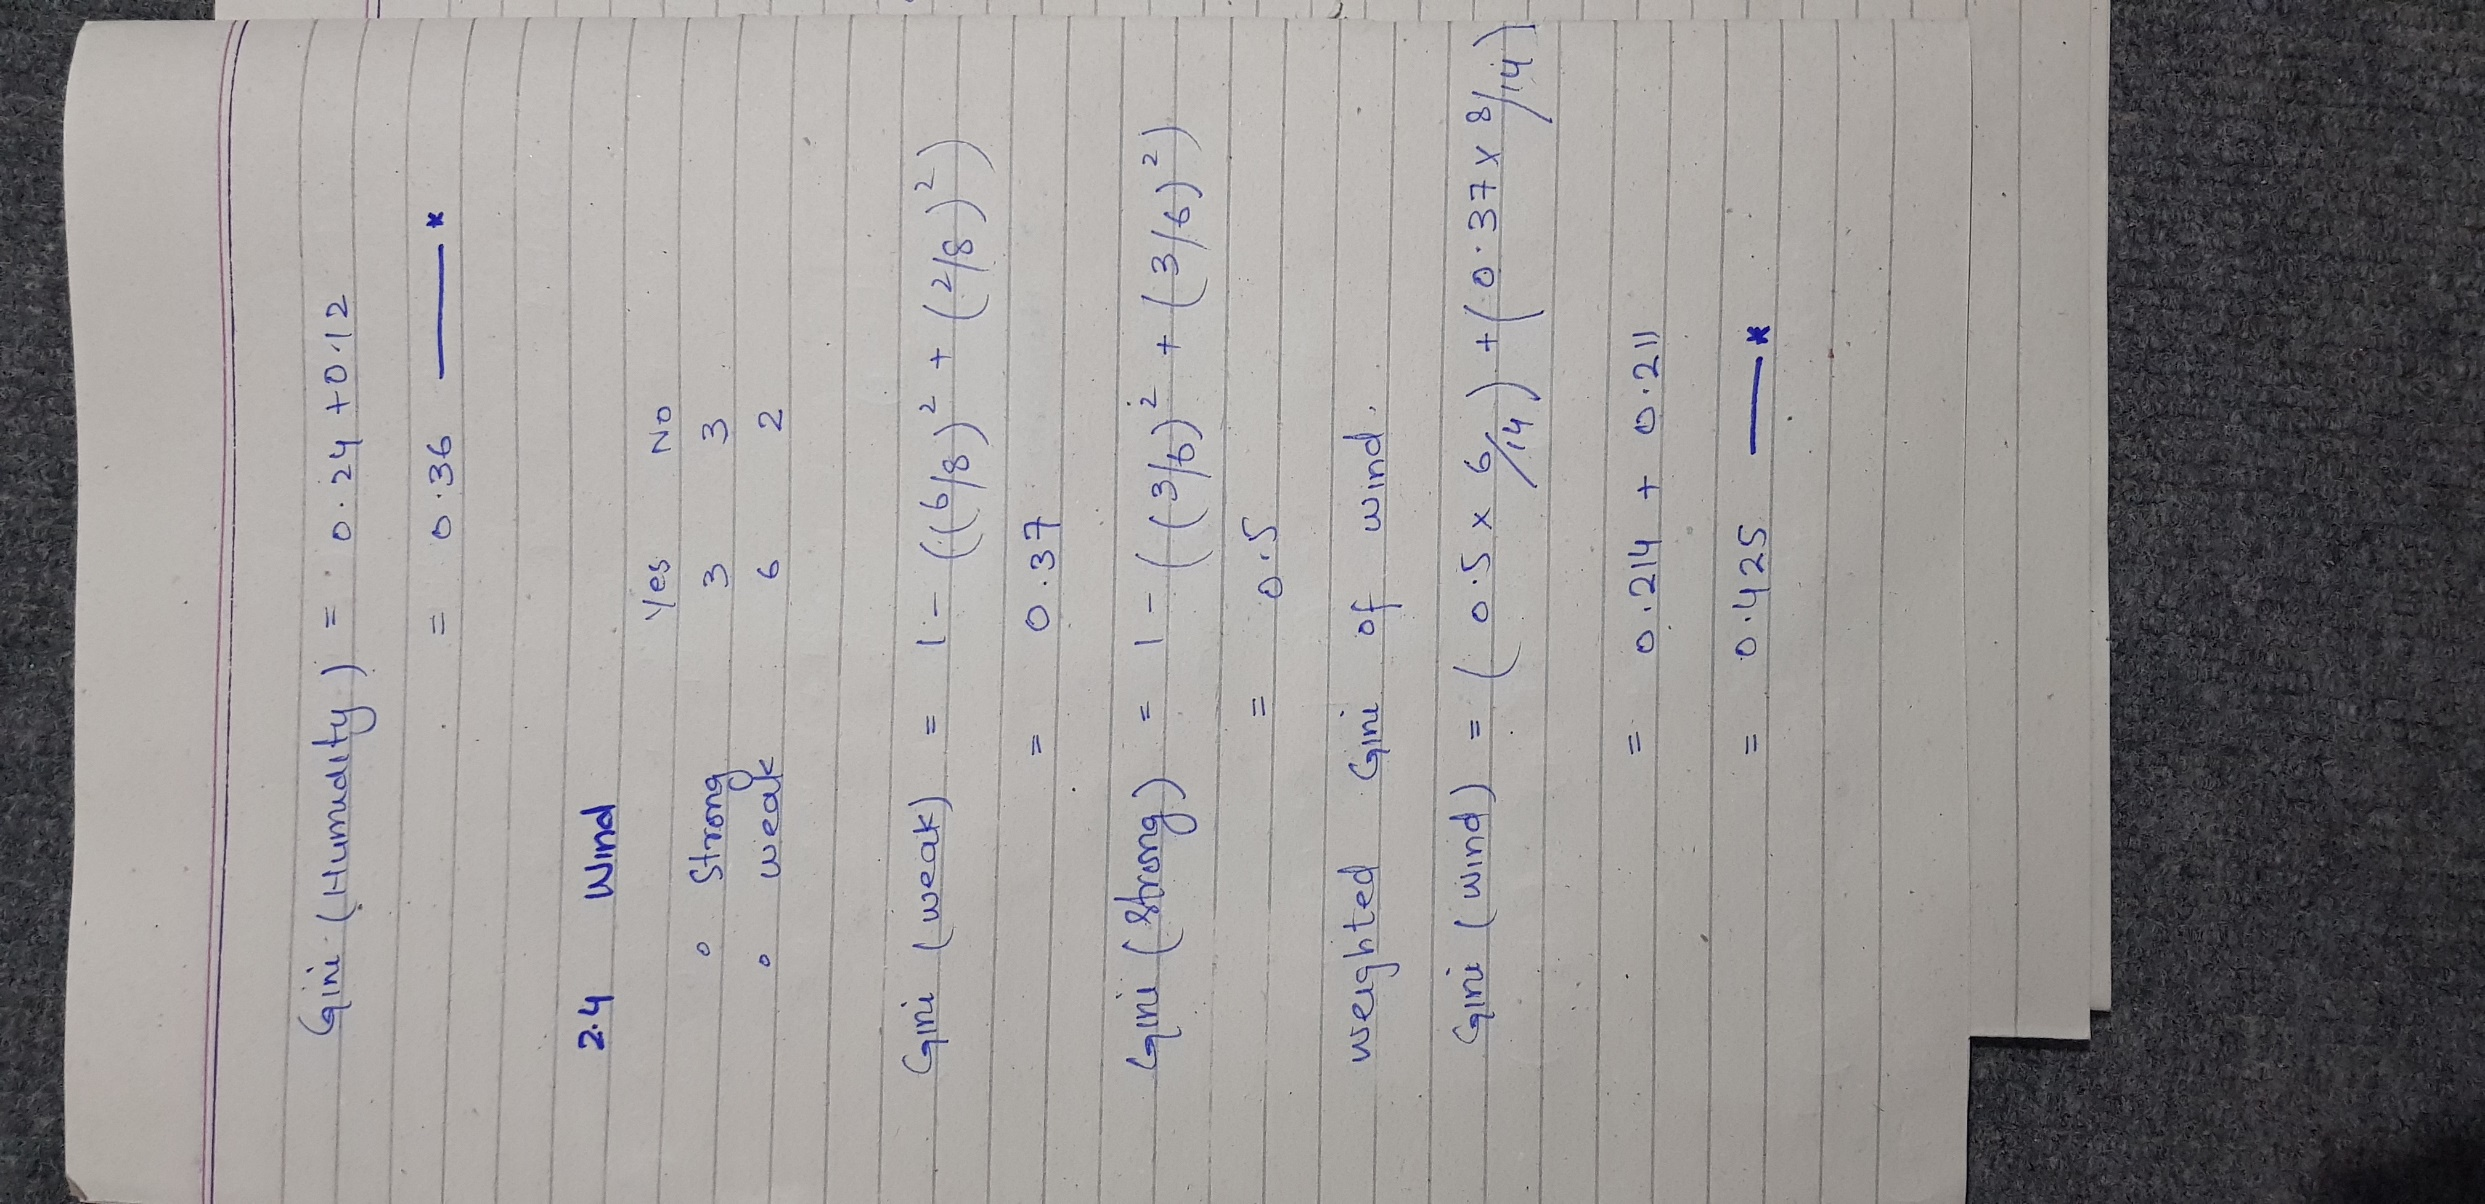 Gini (Humudity) = 0.24 + 0.12
= 0.36 —*
2.4 Wind
Yes No
° Strong 3 3
° weak 6 2
Gini (weak) = 1 - ((6/8)² + (2/8)²)
= 0.37
Gini (Strong) = 1 - ((3/6)² + (3/6)²)
= 0.5
weighted Gini of wind.
Gini (wind) = (0.5 x 6/14) + (0.37 x 8/14)
= 0.214 + 0.211
= 0.425 —*